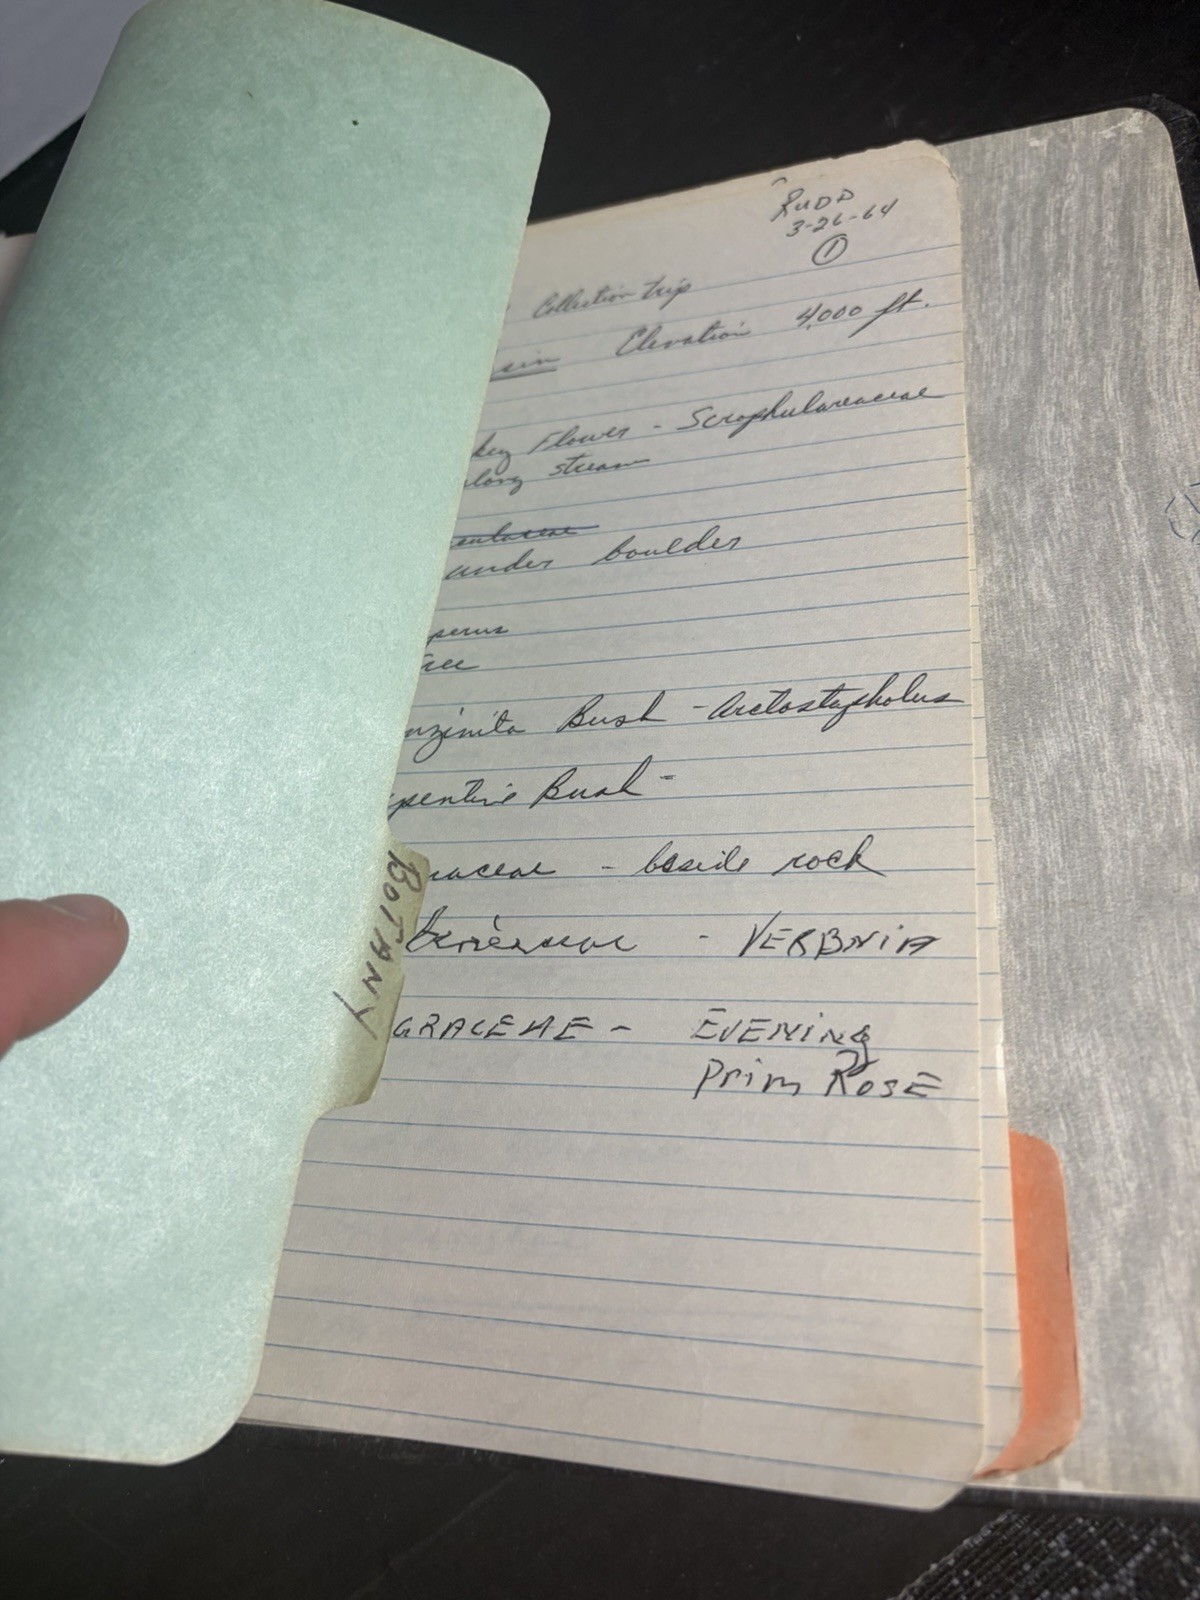 Rudd
3-26-64
1
Collection Trip
sin Elevation 4000 ft.
key Flower - Scrophulareaceae
along stream
under boulder
perus
nzinita Bush - Arctostapholus
pentine Bush -
raceae - beside rock
- VERBNiA
GRACEAE - EVENING
Prim ROSE
BOTANY